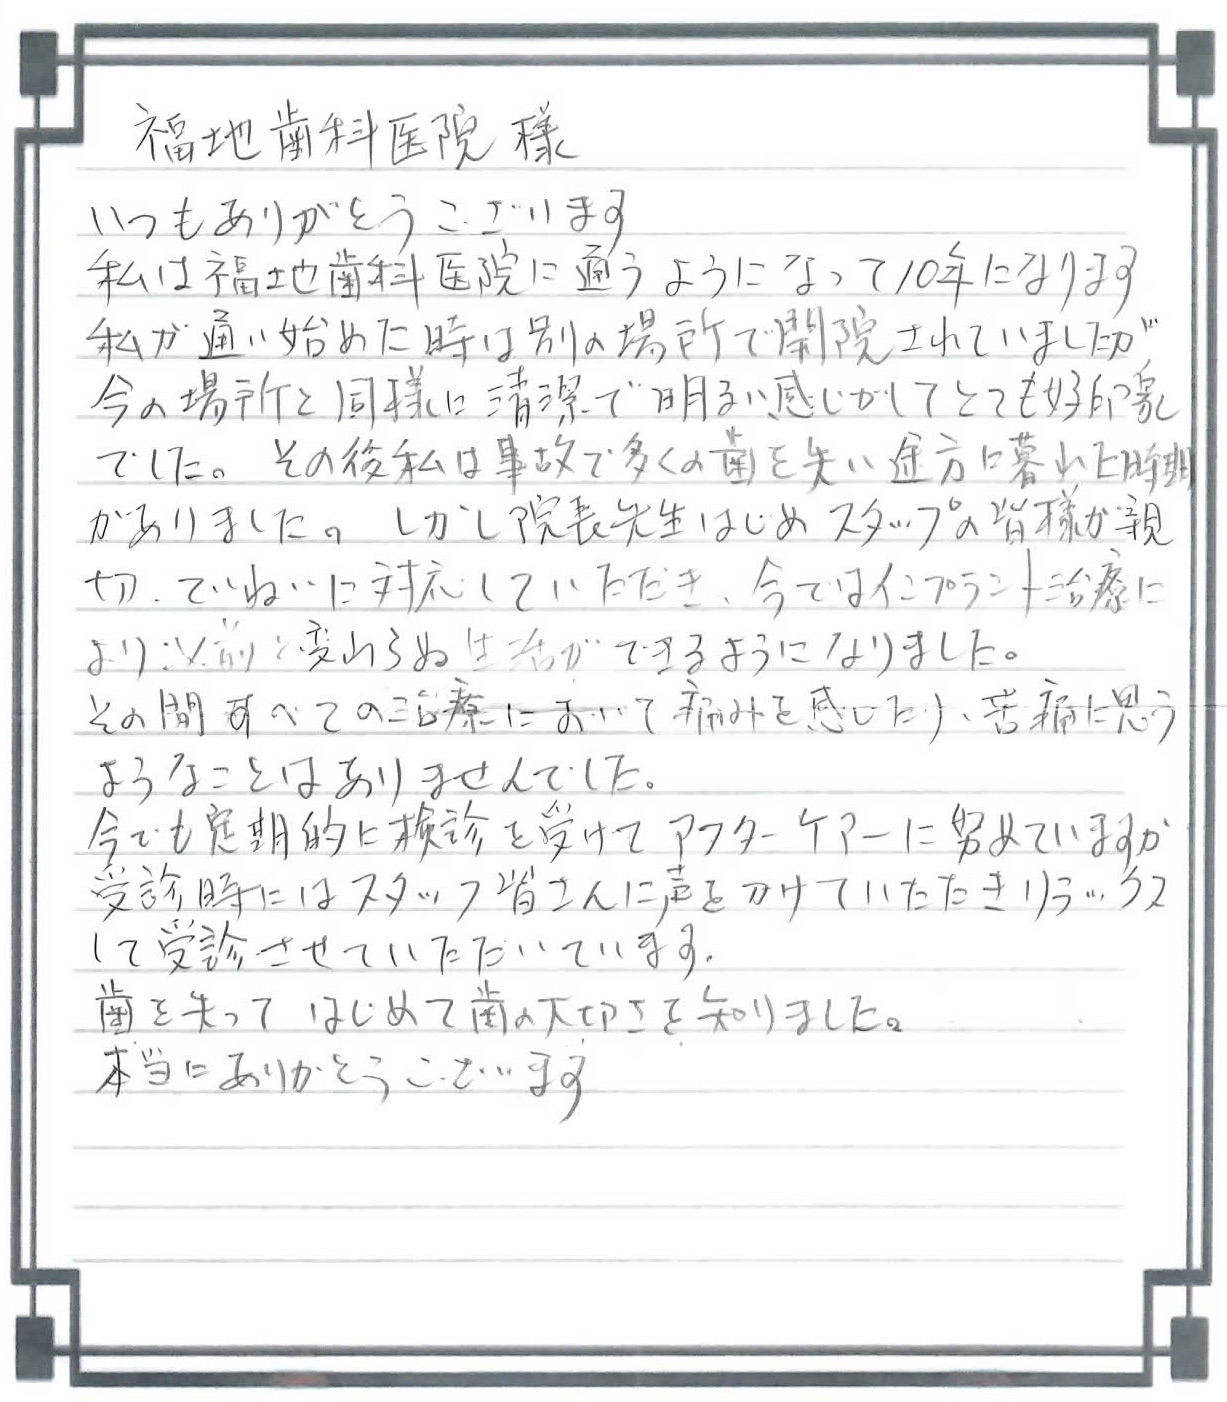 福地歯科医院 様
いつもありがとうございます
私は福地歯科医院に通うようになって10年になります
私が通い始めた時は別の場所で開院されていましたが
今の場所と同様に清潔で明るい感じがしてとても好印象
でした。その後私は事故で多くの歯を失い途方に暮れた時期
がありました。しかし院長先生はじめスタッフの皆様が親
切、ていねいに対応していただき、今ではインプラント治療に
より以前と変わらぬ生活ができるようになりました。
その間すべての治療において痛みを感じたり、苦痛に思う
ようなことはありませんでした。
今でも定期的に検診を受けてアフターケアーに努めていますが
受診時にはスタッフ皆さんに声をかけていただきリラックス
して受診させていただいています。
歯を失って はじめて歯の大切さを知りました。
本当にありがとうございます